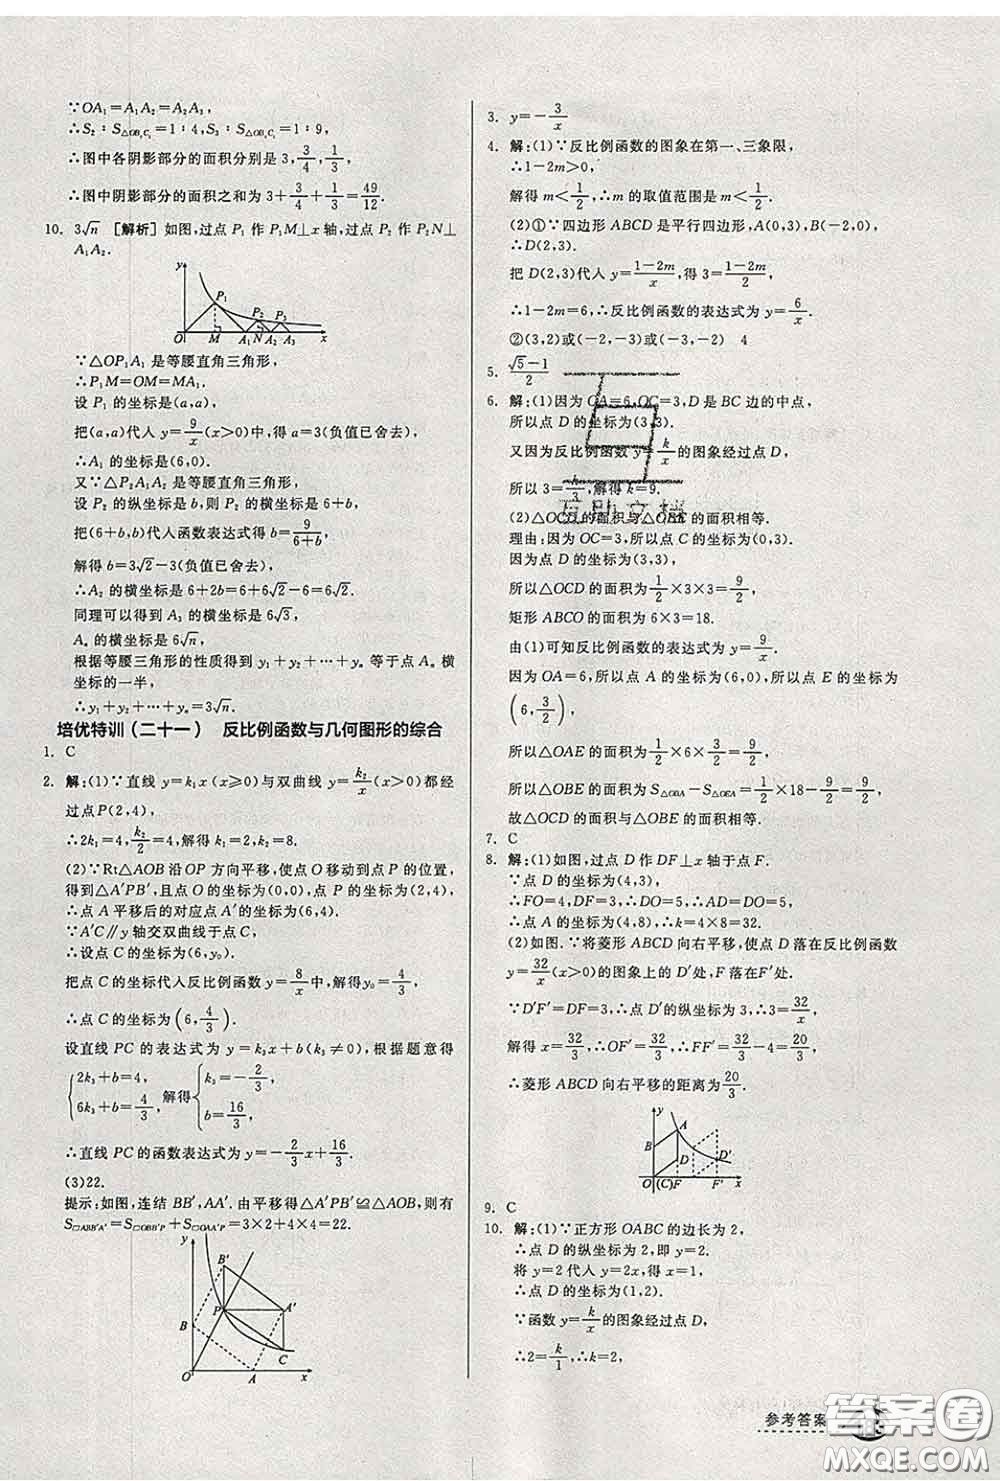 ∵OA₁=A₁A₂=A₂A₃,
∴S₂∶S△OB₂C₂=1∶4,S₃∶S△OB₃C₃=1∶9,
∴图中各阴影部分的面积分别是 3,3/4,1/3,
∴图中阴影部分的面积之和为 3+3/4+1/3=49/12.
10. 3√n [解析] 如图,过点 P₁ 作 P₁M⊥x 轴,过点 P₂ 作 P₂N⊥
A₁A₂.
y
P₁
P₂ P₃
O M A₁ N A₂ A₃ x
∵△OP₁A₁ 是等腰直角三角形,
∴P₁M=OM=MA₁.
设 P₁ 的坐标是(a,a),
把(a,a)代入 y=9/x(x>0)中,得 a=3(负值已舍去),
∴A₁ 的坐标是(6,0).
又∵△P₂A₁A₂ 是等腰直角三角形,
设 P₂ 的纵坐标是 b,则 P₂ 的横坐标是 6+b,
把(6+b,b)代入函数表达式得 b=9/(6+b),
解得 b=3√2-3(负值已舍去),
∴A₂ 的横坐标是 6+2b=6+6√2-6=6√2.
同理可以得到 A₃ 的横坐标是 6√3,
Aₙ 的横坐标是 6√n,
根据等腰三角形的性质得到 y₁+y₂+…+yₙ 等于点 Aₙ 横
坐标的一半,
∴y₁+y₂+…+yₙ=3√n.
培优特训(二十一) 反比例函数与几何图形的综合
1. C
2. 解:(1)∵直线 y=k₁x(x≥0)与双曲线 y=k₂/x(x>0)都经
过点P(2,4),
∴2k₁=4,k₂/2=4,解得 k₁=2,k₂=8.
(2)∵Rt△AOB 沿 OP 方向平移,使点 O 移动到点 P 的位置,
得到△A'PB',且点 O 的坐标为(0,0),点 P 的坐标为(2,4),
∴点 A 平移后的对应点 A'的坐标为(6,4).
∵A'C∥y 轴交双曲线于点 C,
∴设点 C 的坐标为(6,y₀).
把点 C 的坐标代入反比例函数 y=8/x 中,解得y₀=4/3,
∴点 C 的坐标为(6,4/3).
设直线 PC 的表达式为 y=k₃x+b(k₃≠0),根据题意得
{2k₃+b=4, 6k₃+b=4/3, 解得{k₃=-2/3, b=16/3,
∴直线 PC 的函数表达式为 y=-2/3x+16/3.
(3)22.
提示:如图,连结 BB',AA'.由平移得△A'PB'≌△AOB,则有
S□ABB'A'=S□OBB'P+S□OAA'P=3×2+4×4=22.
y
B'
P A'
B
C
O A x
3. y=-3/x
4. 解:(1)∵反比例函数的图象在第一、三象限,
∴1-2m>0,
解得 m<1/2,∴m 的取值范围是 m<1/2.
(2)①∵四边形 ABCD 是平行四边形,A(0,3),B(-2,0),
∴D(2,3).
把 D(2,3)代入 y=(1-2m)/x,得 3=(1-2m)/2,
∴1-2m=6,∴反比例函数的表达式为 y=6/x.
②(3,2)或(-2,-3)或(-3,-2) 4
5. (√5-1)/2
6. 解:(1)因为 OA=6,OC=3,D 是 BC 边的中点,
所以点 D 的坐标为(3,3).
又因为反比例函数 y=k/x 的图象经过点 D,
所以 3=k/3,解得 k=9.
(2)△OCD 的面积与△OBE 的面积相等.
理由:因为 OC=3,所以点 C 的坐标为(0,3).
因为点 D 的坐标为(3,3),
所以△OCD 的面积为 1/2×3×3=9/2.
矩形 ABCO 的面积为 6×3=18.
由(1)可知反比例函数的表达式为 y=9/x.
因为 OA=6,所以点 A 的坐标为(6,0),所以点 E 的坐标为
(6,3/2),
所以△OAE 的面积为 1/2×6×3/2=9/2,
所以△OBE 的面积为 S△OBA-S△OEA=1/2×18-9/2=9/2,
故△OCD 的面积与△OBE 的面积相等.
7. C
8. 解:(1)如图,过点 D 作 DF⊥x 轴于点 F.
∵点 D 的坐标为(4,3),
∴FO=4,DF=3,∴DO=5,∴AD=5,
∴点 A 的坐标为(4,8),∴k=4×8=32.
(2)如图.∵将菱形 ABCD 向右平移,使点 D 落在反比例函数
y=32/x(x>0)的图象上的 D'处,F 落在F'处.
∵D'F'=DF=3,∴点 D'的纵坐标为 3,∴3=32/x,
解得 x=32/3,∴OF'=32/3,∴FF'=32/3-4=20/3,
∴菱形 ABCD 向右平移的距离为20/3.
y
A
B
D D'
O(C) F F' x
9. C
10. 解:(1)∵正方形 OABC 的边长为 2,
∴点 D 的纵坐标为 2,即 y=2.
将 y=2 代入 y=2x,得 x=1,
∴点 D 的坐标为(1,2).
∵函数 y=k/x 的图象过点 D,
∴2=k/1,∴k=2,
参考答案
答案圈
MXQE.COM